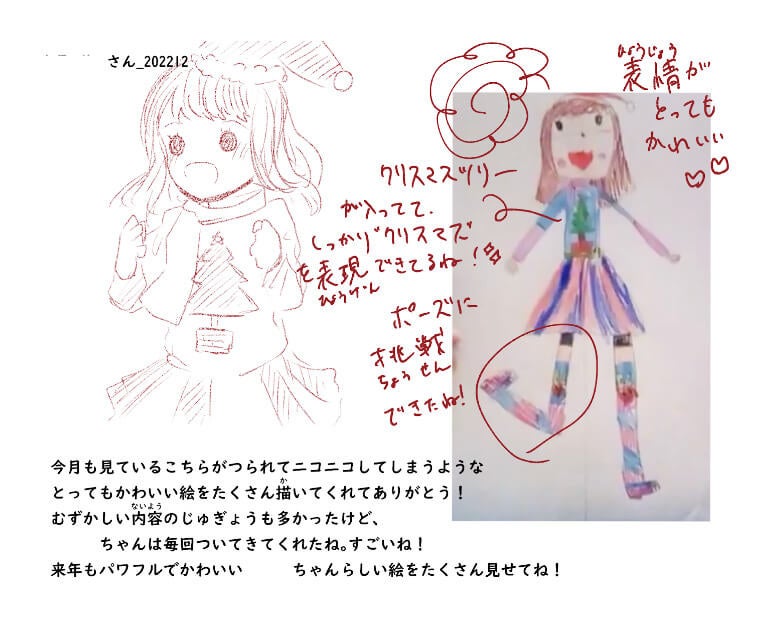 さん_202212
表情が
ひょうじょう
とっても
かわいい
クリスマスツリー
が入ってて、
しっかり"クリスマス"
を表現できてるね！
ひょうげん
ポーズに
挑戦
ちょうせん
できたね！
今月も見ているこちらがつられてニコニコしてしまうような
とってもかわいい絵をたくさん描いてくれてありがとう！
か
むずかしい内容のじゅぎょうも多かったけど、
ないよう
ちゃんは毎回ついてきてくれたね。すごいね！
来年もパワフルでかわいい ちゃんらしい絵をたくさん見せてね！